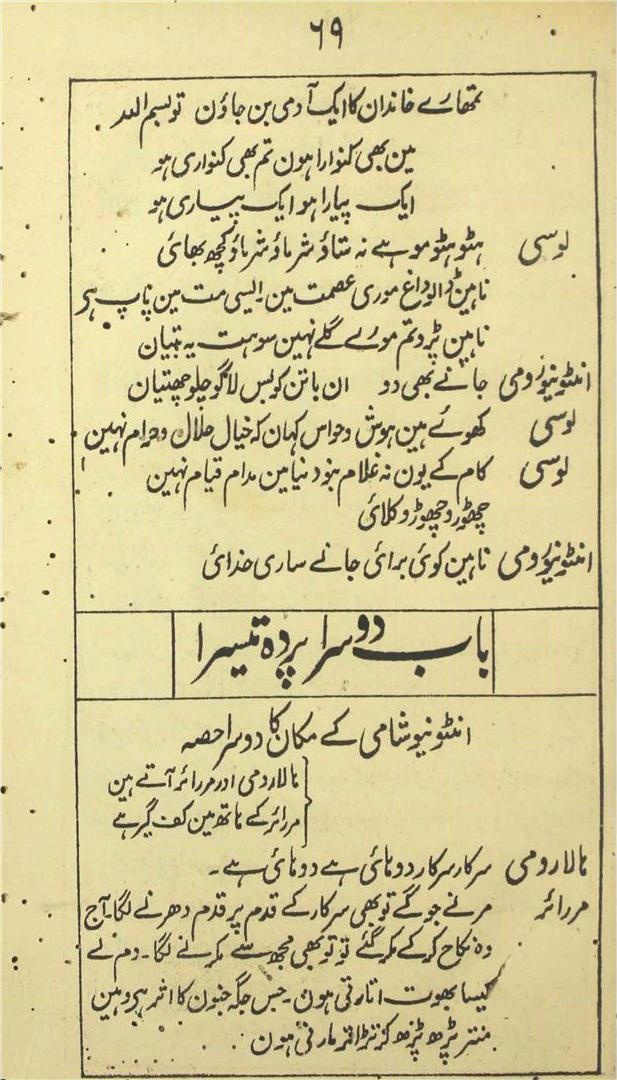 ۶۹
تمھارے خاندان کا ایک آدمی بن جاؤن تو بسم اللہ
مین بھی کنوارا ہون تم بھی کنواری ہو
ایک پیارا ہو ایک پیاری ہو
لوسی ہٹو ہٹو موہے نہ ستاؤ شرماؤ شرماؤ کچھ بھائی
ناہین ڈالو داغ موری عصمت مین۔ ایسی مت مین پاپ ہر
ناہین پڑو تم مورے گلے نہین سوہت یہ بتیان
انٹونیورومی جانے بھی دو ان باتن کو بس لاگو چلو چھتیان
لوسی کھوئے ہین ہوش و حواس کہان کہ خیال حلال و حرام نہین
لوسی کام کے یون نہ غلام بنو دنیا مین مدام قیام نہین
چھوڑو چھوڑو کلائی
انٹونیورومی ناہین کوئی برائی جانے ساری خدائی
باب دوسرا پردہ تیسرا
انٹونیو شامی کے مکان کا دوسرا حصہ
مالارومی اور مررائر آتے ہین
مررائر کے ہاتھ مین کف گیر ہے
مالارومی سرکار سرکار دوہائی ہے دوہائی ہے۔
مررائر مرنے جوگے تو بھی سرکار کے قدم پر قدم دھرنے لگا۔ آج
وہ نکاح کرکے مکر گئے تو تو بھی مجھ سے مکرنے لگا۔ دم لے
کیسا بھوت اتارتی ہون۔ جس جگہ جنون کا اثر ہو وہین
منتر پڑھ پڑھ کر تڑاقر مارتی ہون